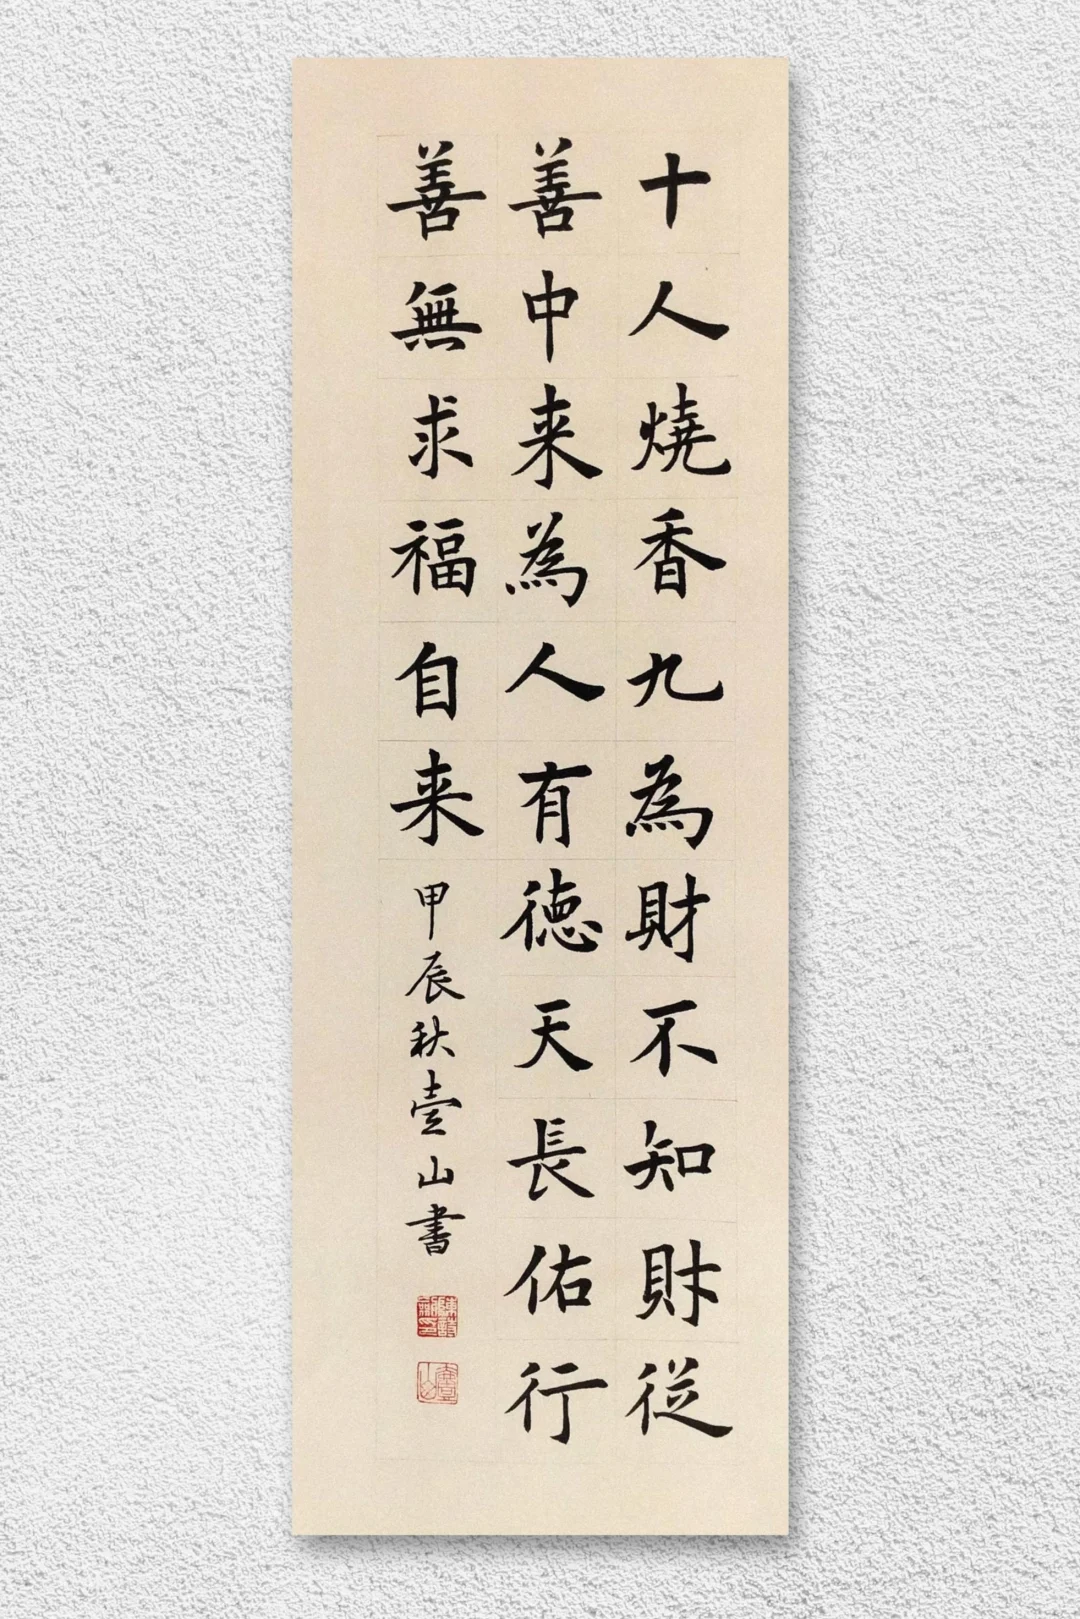 十人燒香九為財不知財從
善中来為人有德天長佑行
善無求福自来
甲辰秋壹山書